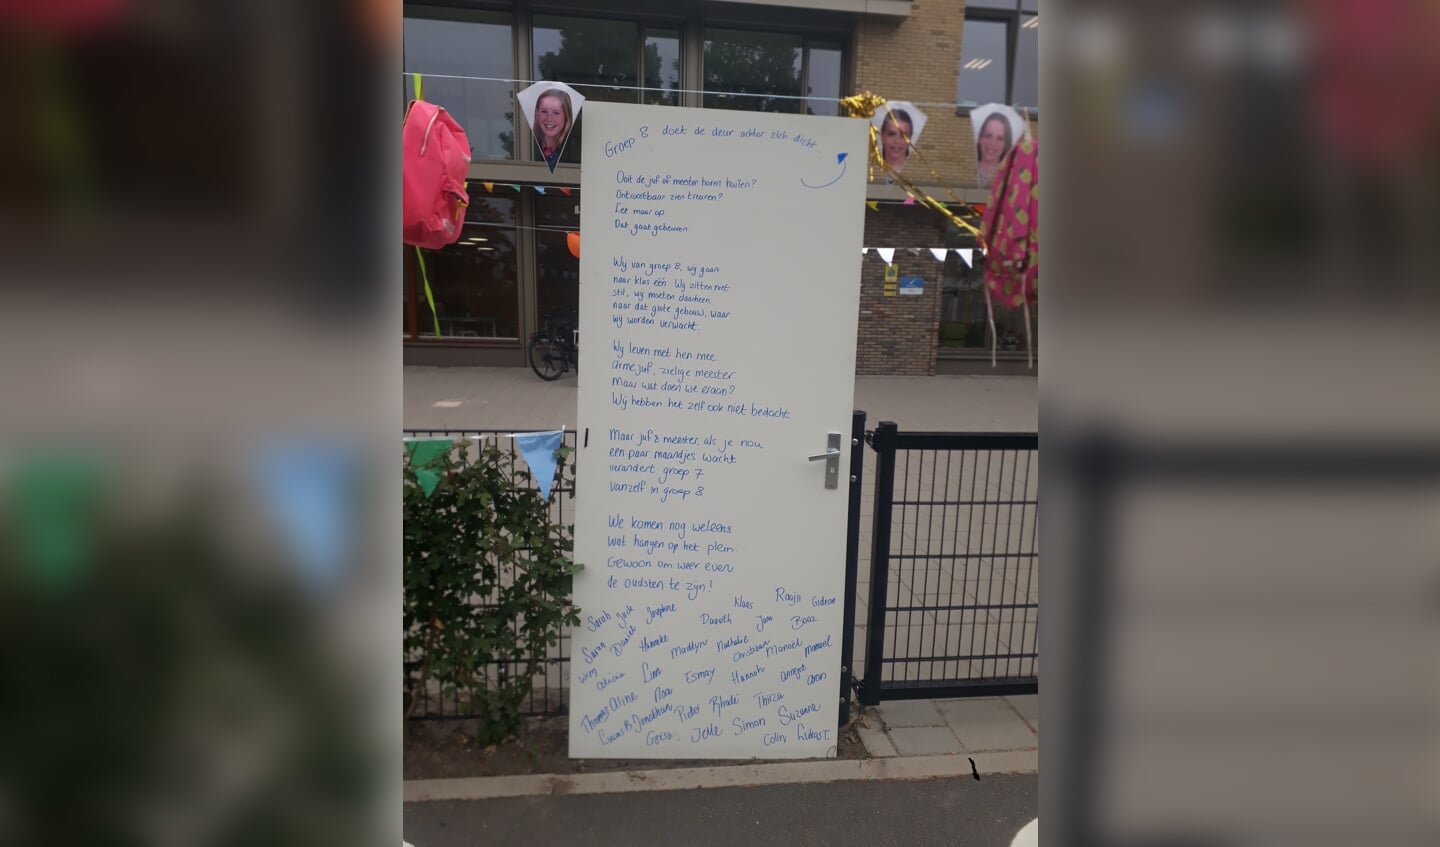 Groep 8 doet de deur achter zich dicht...
Ooit de juf of meester horen huilen?
Ontroostbaar zien treuren?
Let maar op
Dat gaat gebeuren.
Wij van groep 8, wij gaan
naar klas één. Wij zitten niet
stil, wij moeten daarheen
naar dat grote gebouw, waar
wij worden verwacht.
Wij leven met hen mee
arme juf, zielige meester
Maar wat doen we eraan?
Wij hebben het zelf ook niet bedacht
Maar juf & meester, als je nou
een paar maandjes wacht
verandert groep 7
vanzelf in groep 8
We komen nog weleens
wat hangen op het plein.
Gewoon om weer even
de oudsten te zijn!
Sarah Jack Josephine Klaas Gideon
Daniël Hanneke Jana Boaz
Wim Linn Madlyn Nathalie Christiaan Manoël Manuel
Thomas Aline Noa Esmay Hannah Annejet Aron
Lucas B. Jonathan Pieter Rhodé Thirza
Jelle Simon Suzanne
Colin Lukas T.